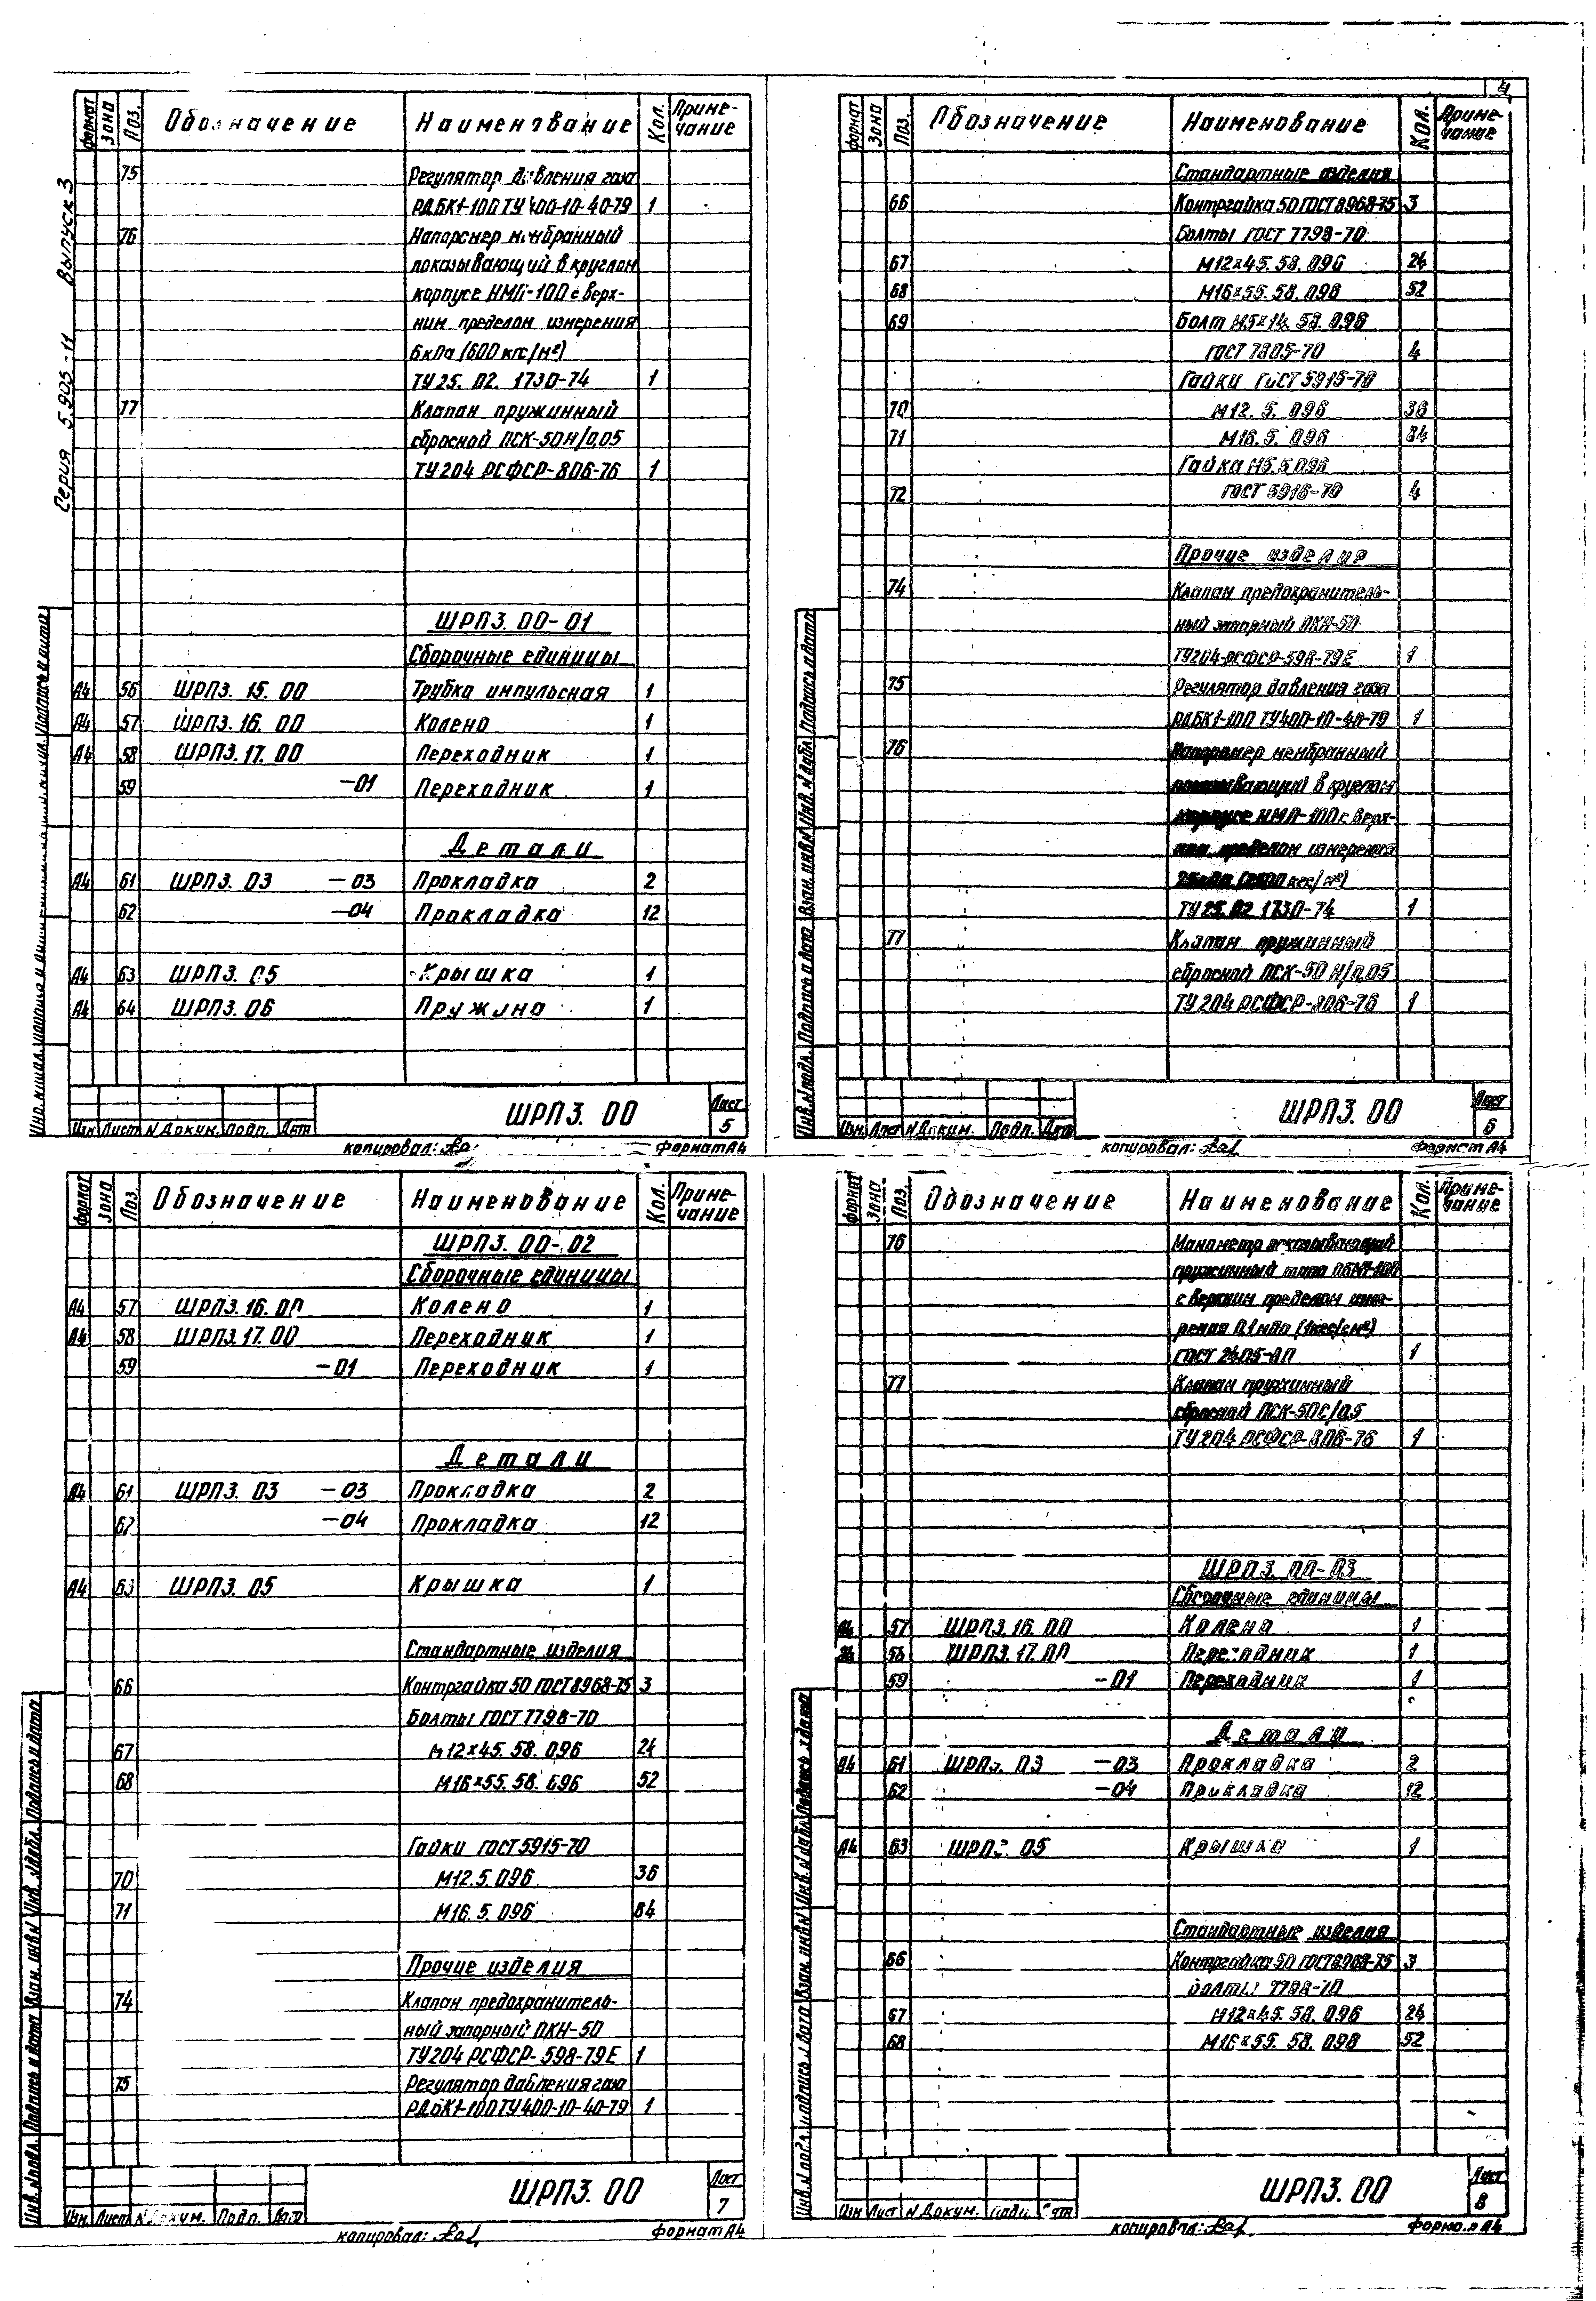 4
Серия 5.905-11 Выпуск 3
Формат Зона Поз. Обозначение Наименование Кол. Приме-
чание
75 Регулятор давления газа
РДБК1-100 ТУ 400-10-40-79 1
76 Напоромер мембранный
показывающий в круглом
корпусе НМП-100 с верх-
ним пределом измерения
6 кПа (600 кгс/м²)
ТУ 25. 02. 1730-74 1
77 Клапан пружинный
сбросной ПСК-50Н/0,05
ТУ 204 РСФСР-806-76 1
ШРП3. 00-01
Сборочные единицы
А4 56 ШРП3. 15. 00 Трубка импульсная 1
А4 57 ШРП3. 16. 00 Колено 1
А4 58 ШРП3. 17. 00 Переходник 1
59 -01 Переходник 1
Детали
А4 61 ШРП3. 03 -03 Прокладка 2
62 -04 Прокладка 12
А4 63 ШРП3. 05 Крышка 1
А4 64 ШРП3. 06 Пружина 1
Изм Лист N Докум. Подп. Дата
ШРП3. 00
Лист
5
копировал:
Формат А4
Формат Зона Поз. Обозначение Наименование Кол. Приме-
чание
Стандартные изделия
66 Контргайка 50 ГОСТ 8968-75 3
Болты ГОСТ 7798-70
67 М12х45. 58. 096 24
68 М16х55. 58. 096 52
69 Болт М5х14. 58. 096
ГОСТ 7805-70 4
Гайки ГОСТ 5915-70
70 М12. 5. 096 36
71 М16. 5. 096 84
Гайка М5.5.096
72 ГОСТ 5916-70 4
Прочие изделия
74 Клапан предохранитель-
ный запорный ПКН-50
ТУ204-РСФСР-598-79Е 1
75 Регулятор давления газа
РДБК1-100 ТУ400-10-40-79 1
76 Напоромер мембранный
показывающий в круглом
корпусе НМП-100 с верх-
ним пределом измерения
25 кПа (2500 кгс/м²)
ТУ 25. 02 1730-74 1
77 Клапан пружинный
сбросной ПСК-50 Н/0,05
ТУ 204 РСФСР-806-76 1
Инв. N подл. Подпись и дата Взам. инв N Инв. N дубл. Подпись и дата
Изм. Лист N Докум. Подп. Дата
ШРП3. 00
Лист
6
копировал:
Формат А4
Формат Зона Поз. Обозначение Наименование Кол. Приме-
чание
ШРП3. 00-02
Сборочные единицы
А4 57 ШРП3. 16. 00 Колено 1
А4 58 ШРП3. 17. 00 Переходник 1
59 -01 Переходник 1
Детали
А4 61 ШРП3. 03 -03 Прокладка 2
62 -04 Прокладка 12
А4 63 ШРП3. 05 Крышка 1
Стандартные изделия
66 Контргайка 50 ГОСТ 8968-75 3
Болты ГОСТ 7798-70
67 М12х45. 58. 096 24
68 М16х55. 58. 096 52
Гайки ГОСТ 5915-70
70 М12.5. 096 36
71 М16. 5. 096 84
Прочие изделия
74 Клапан предохранитель-
ный запорный ПКН-50
ТУ204 РСФСР-598-79Е 1
75 Регулятор давления газа
РДБК1-100 ТУ400-10-40-79 1
Инв. N подл. Подпись и дата Взам. инв. N Инв. N дубл. Подпись и дата
Изм. Лист N Докум. Подп. Дата
ШРП3. 00
Лист
7
копировал:
Формат А4
Формат Зона Поз. Обозначение Наименование Кол. Приме-
чание
76 Манометр показывающий
пружинный типа ОБМ1-100
с верхним пределом изме-
рения 0,1 мПа (1кгс/см²)
ГОСТ 2405-80 1
77 Клапан пружинный
сбросной ПСК-50С/0,5
ТУ 204 РСФСР-806-76 1
ШРП3. 00-03
Сборочные единицы
А4 57 ШРП3. 16. 00 Колено 1
А4 58 ШРП3. 17. 00 Переходник 1
59 -01 Переходник 1
Детали
А4 61 ШРП3. 03 -03 Прокладка 2
62 -04 Прокладка 12
А4 63 ШРП3. 05 Крышка 1
Стандартные изделия
66 Контргайка 50 ГОСТ 8968-75 3
Болты 7798-70
67 М12х45. 58. 096 24
68 М16х55. 58. 096 52
Инв. N подл. Подпись и дата Взам. инв N Инв. N дубл. Подпись и дата
Изм Лист N Докум. Подп. Дата
ШРП3. 00
Лист
8
копировал:
Формат А4